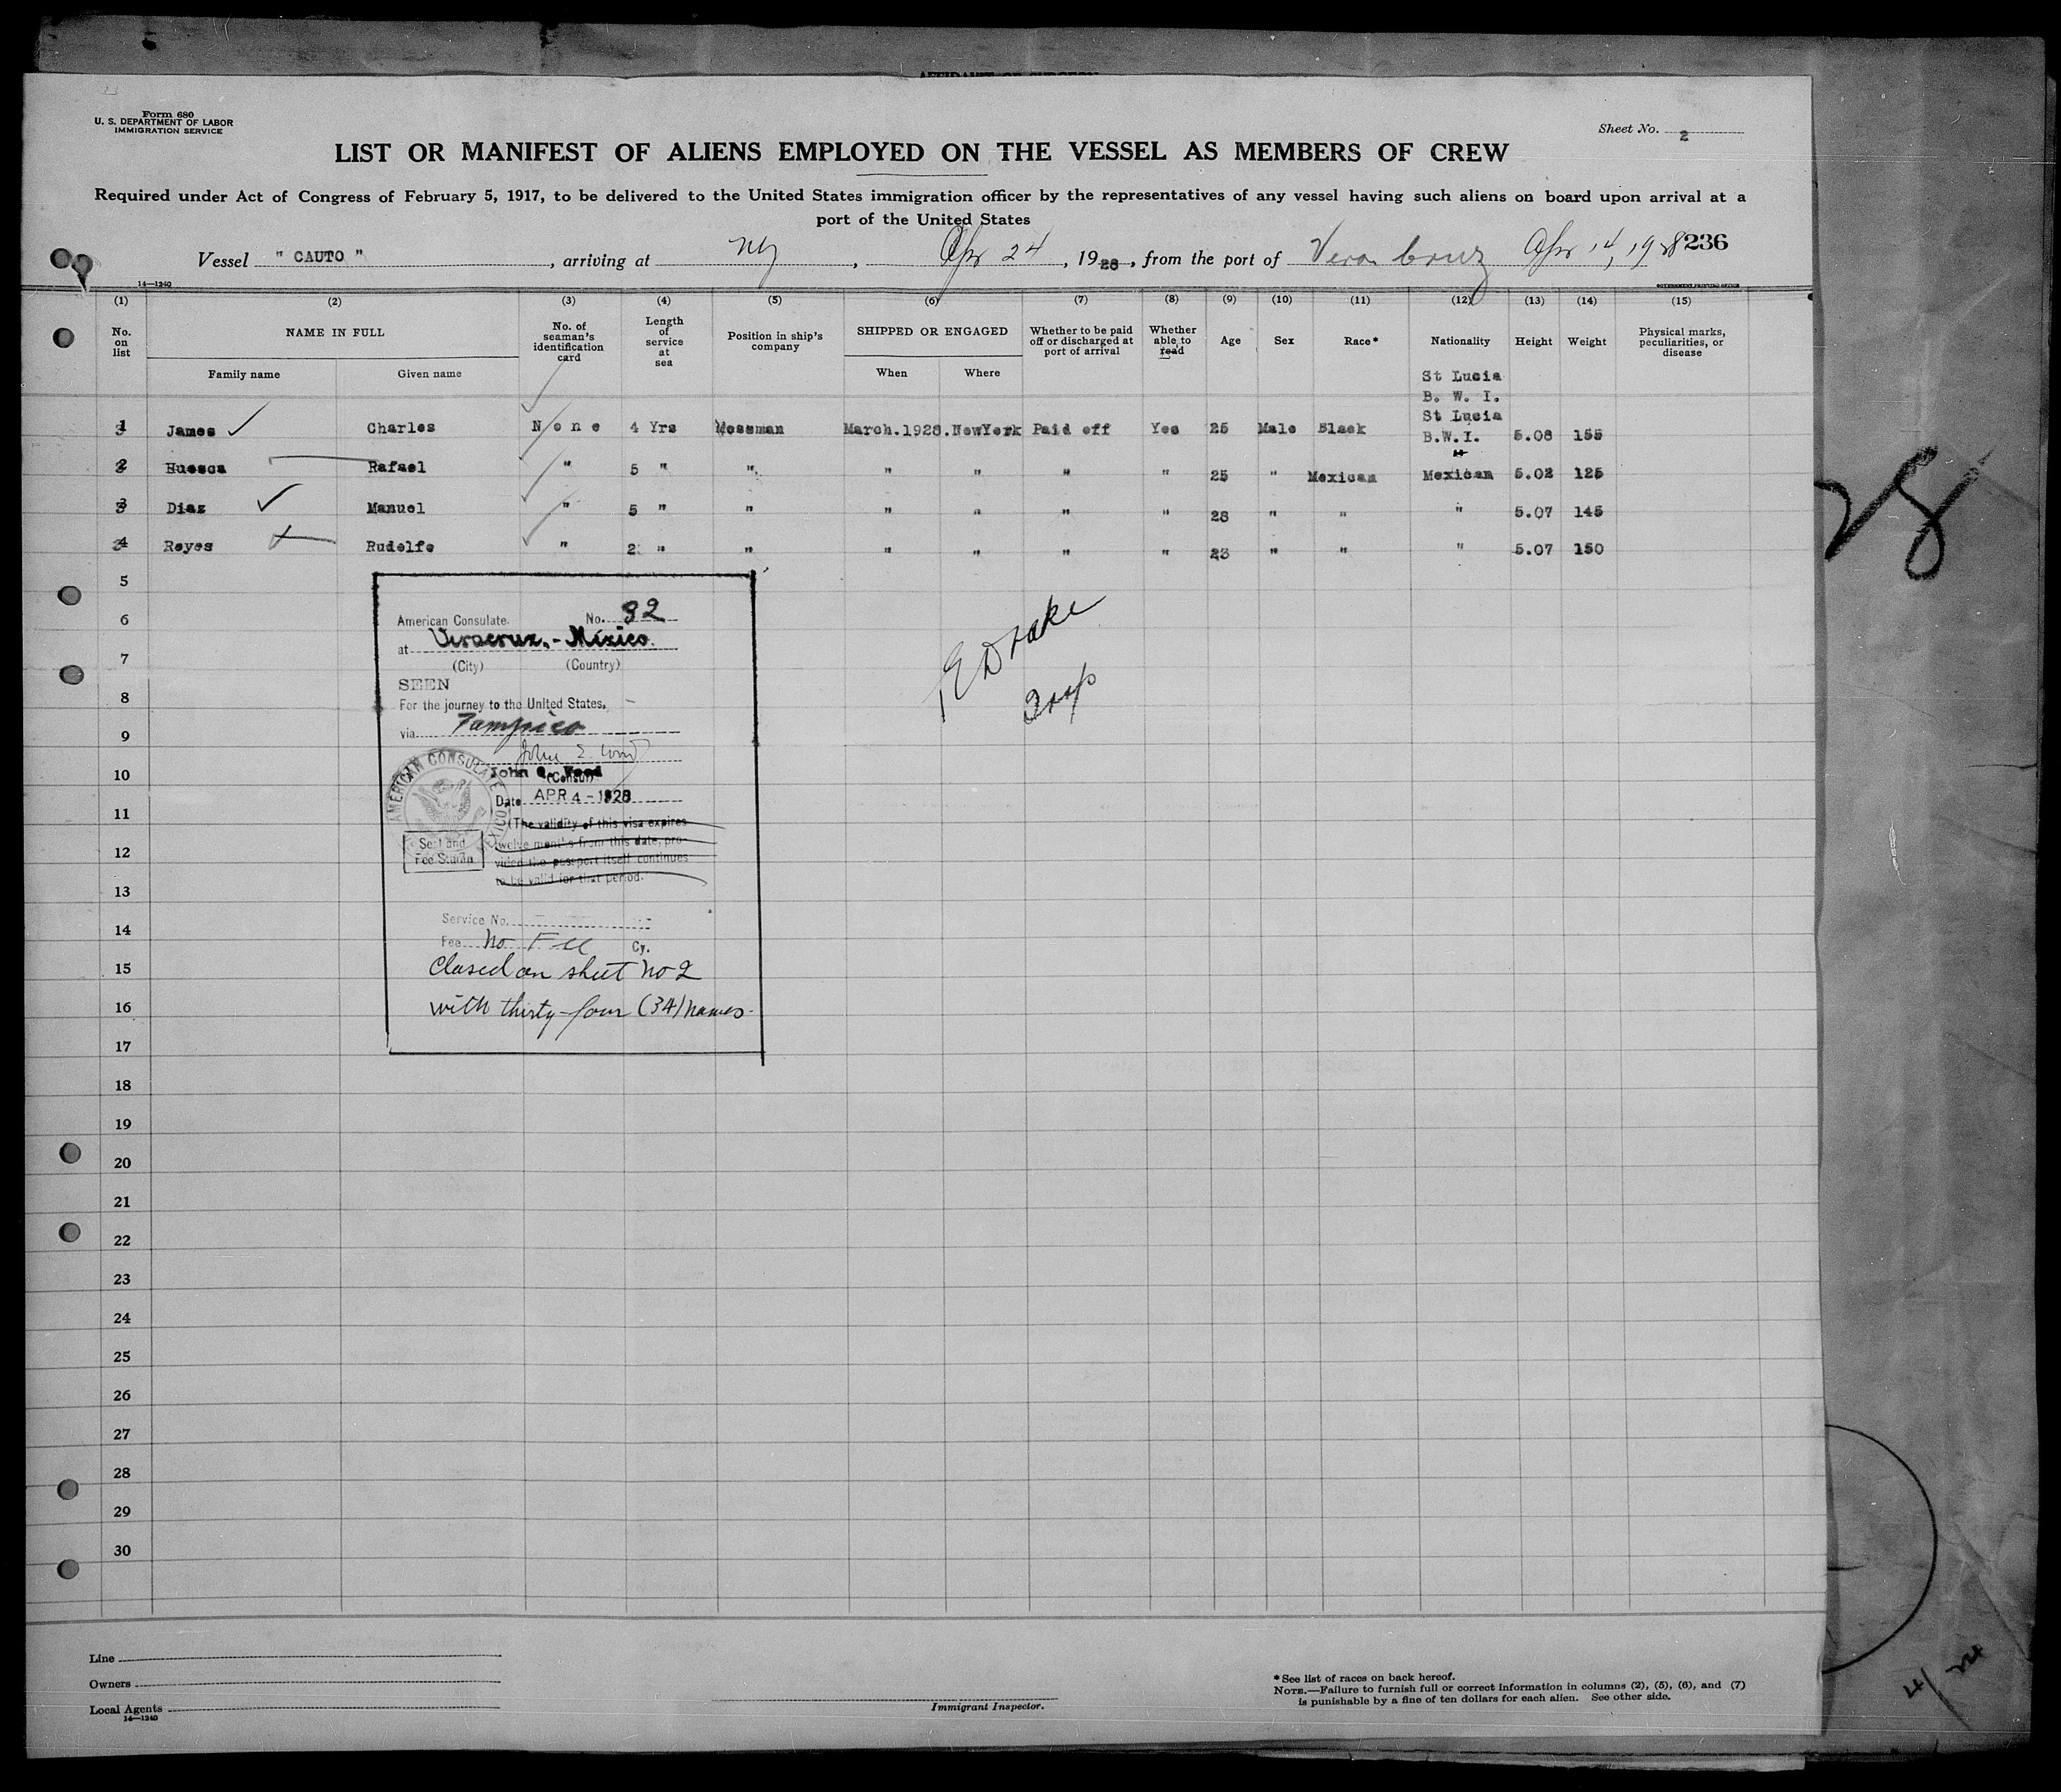 AFFIDAVIT OF SURGEON
Form 680
U. S. DEPARTMENT OF LABOR
IMMIGRATION SERVICE
Sheet No. 2
LIST OR MANIFEST OF ALIENS EMPLOYED ON THE VESSEL AS MEMBERS OF CREW
Required under Act of Congress of February 5, 1917, to be delivered to the United States immigration officer by the representatives of any vessel having such aliens on board upon arrival at a
port of the United States
Vessel " CAUTO ", arriving at NY, Apr 24, 1928, from the port of Vera Cruz Apr 14, 1928 236
14—1240 GOVERNMENT PRINTING OFFICE
(1) (2) (3) (4) (5) (6) (7) (8) (9) (10) (11) (12) (13) (14) (15)
No. on list NAME IN FULL No. of seaman's identification card Length of service at sea Position in ship's company SHIPPED OR ENGAGED Whether to be paid off or discharged at port of arrival Whether able to read Age Sex Race* Nationality Height Weight Physical marks, peculiarities, or disease
Family name Given name When Where
St Lucia
B. W. I.
St Lucia
1 James ✓ Charles None 4 Yrs Messman March.1928. NewYork Paid off Yes 25 Male Black B.W.I. 5.08 155
2 Huesca Rafael " 5 " " " " " " 25 " Mexican Mexican 5.02 125
3 Diaz ✓ Manuel " 5 " " " " " " 28 " " " 5.07 145
4 Reyes Rudolfo " 2 " " " " " " 23 " " " 5.07 150
5
6
7
8
9
10
11
12
13
14
15
16
17
18
19
20
21
22
23
24
25
26
27
28
29
30
American Consulate No. 32
at Veracruz,-México.
(City) (Country)
SEEN
For the journey to the United States,
via Tampico
John Q. Wood
(Consul)
Date APR 4 - 1928
(The validity of this visa expires
twelve months from this date, pro-
vided the passport itself continues
to be valid for that period.
AMERICAN CONSULATE
MEXICO
Seal and
Fee Stamp
Service No.
Fee No Fee Cy.
Closed on sheet No 2
with thirty-four (34) names.
E Drake
Insp
28
4/24
Line
Owners
Local Agents
14—1240
Immigrant Inspector.
*See list of races on back hereof.
NOTE.—Failure to furnish full or correct information in columns (2), (5), (6), and (7)
is punishable by a fine of ten dollars for each alien. See other side.